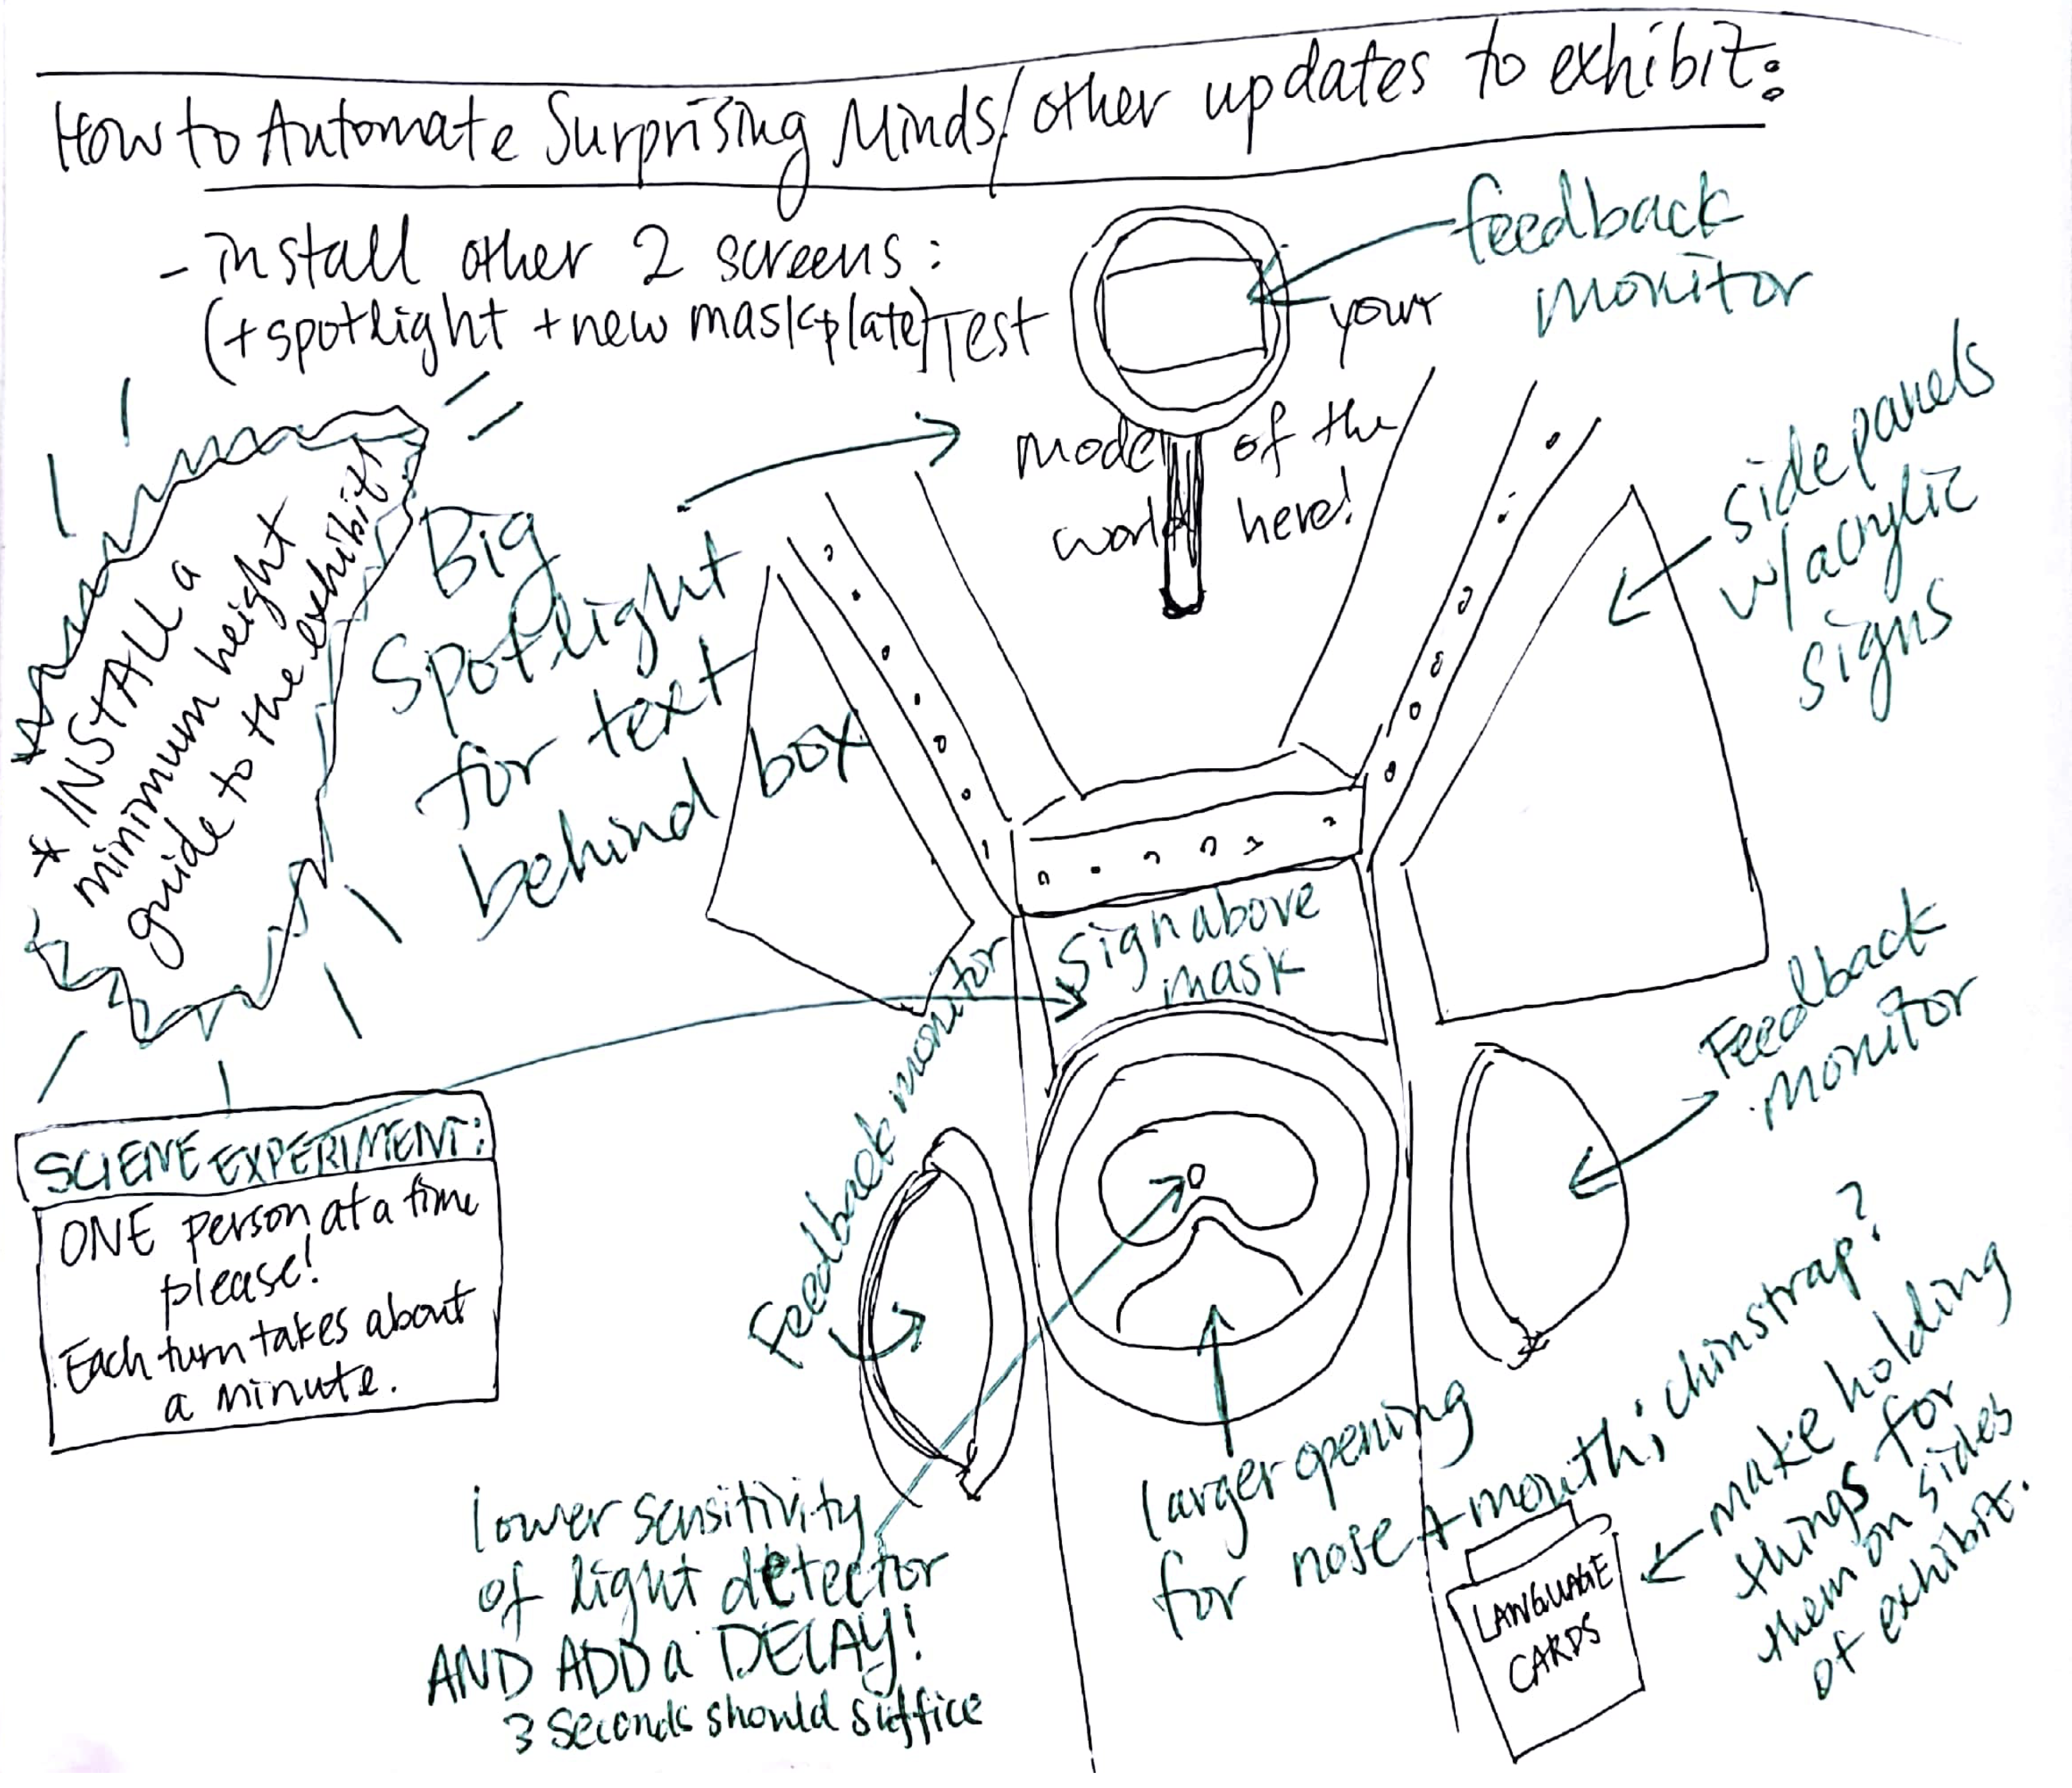 How to Automate Surprising Minds/other updates to exhibit:
- install other 2 screens:
(+spotlight +new maskplate)
Test your
model of the
world here!
feedback
monitor
side panels
w/acrylic
signs
* INSTALL a
minimum height
guide to the exhibit!
Big
Spotlight
for text
behind box
Sign above
mask
Feedback monitor
Feedback
monitor
SCIENE EXPERIMENT:
ONE person at a time
please!
Each turn takes about
a minute.
lower sensitivity
of light detector
AND ADD a DELAY!
3 seconds should suffice
larger opening
for nose + mouth; chinstrap?
make holding
things for
them on sides
of exhibit.
LANGUAGE
CARDS